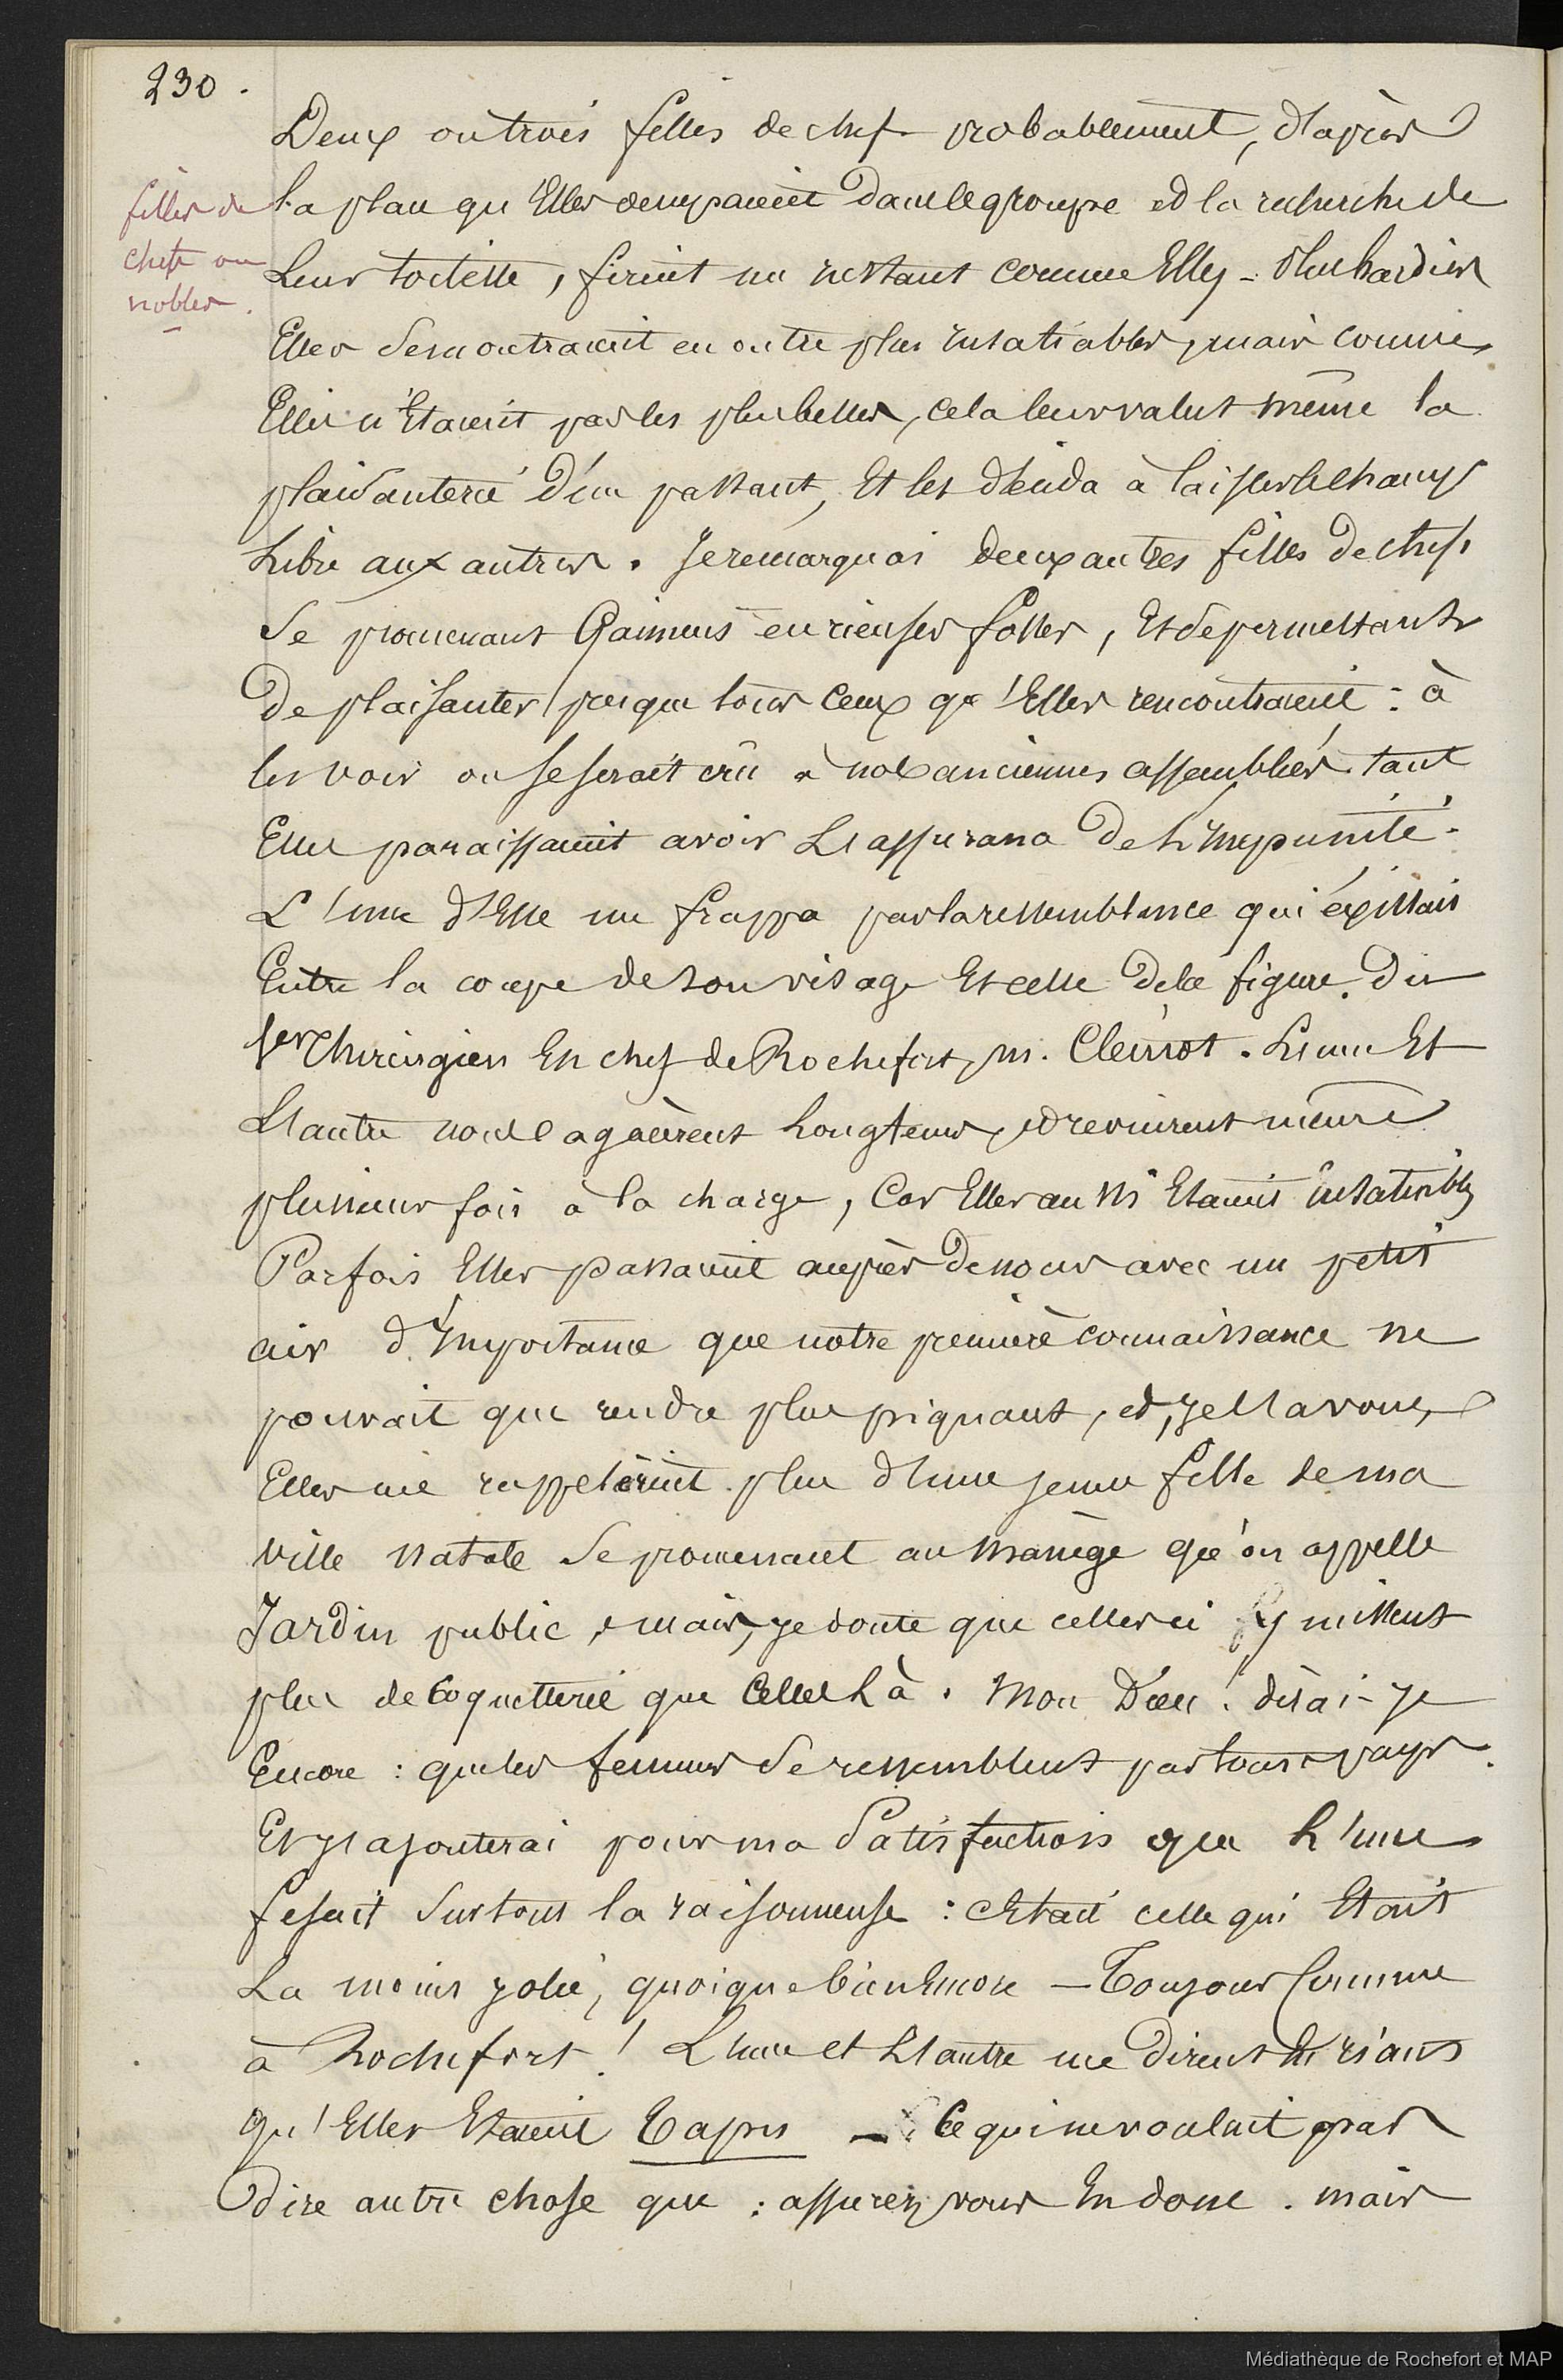 230.
filles de
chefs ou
nobles.
Deux ou trois filles de chef probablement, d'après
la place qu'Elles occupaient dans le groupe et la recherche de
Leur toilette, firent un instant comme Elles - Plus hardies
Elles se montraient en outre plus insatiables, mais comme
Elles n'Etaient pas les plus belles, cela leur valut même la
plaisanterie d'un passant, Et les décida à laisser le champ
Libre aux autres. Je remarquai deux autres filles de chefs
Se promenant Gaiment en rieuses folles, Et se permettant
De plaisanter presque tous ceux qu'Elles rencontraient : à
les voir on se serait crû à nos anciennes assemblées tant
Elles paraissaient avoir L'assurance De L'Impunité.
L'une d'Elles me frappa par la ressemblance qui éxistais
Entre la coupe de son visage Et celle De la figure du
1er Chirurgien En chef de Rochefort, M. Clémot. L'une Et
L'autre nous agacèrent Longtems, et revinrent même
plusieurs fois à la charge, Car Elles aussi Etaient insatiables
Parfois Elles passaient auprès De nous avec un petit
air d'Importance que notre première connaissance ne
pouvait que rendre plus piquant, et, je L'avoue,
Elles me rappelèrent plus d'une jeune fille de ma
ville natale Se promenant au manège qu'on appelle
Jardin public, mais, je doute que celles ci y missent
plus de Coquetterie que Celles Là. Mon Dieu ! dirai-je
Encore : que les femmes Se ressemblent par tous pays.
Et j'ajouterai pour ma Satisfaction que L'une
fesait Surtout la raisonneuse : c'Etait celle qui Etait
La moins jolie, quoique bien Encore — Toujours Comme
à Rochefort ! L'une et L'autre me Dirent En riant
qu'Elles Etaient Tapus — Ce qui ne voulait pas
Dire autre chose que : assurez vous En donc. mais
Médiathèque de Rochefort et MAP